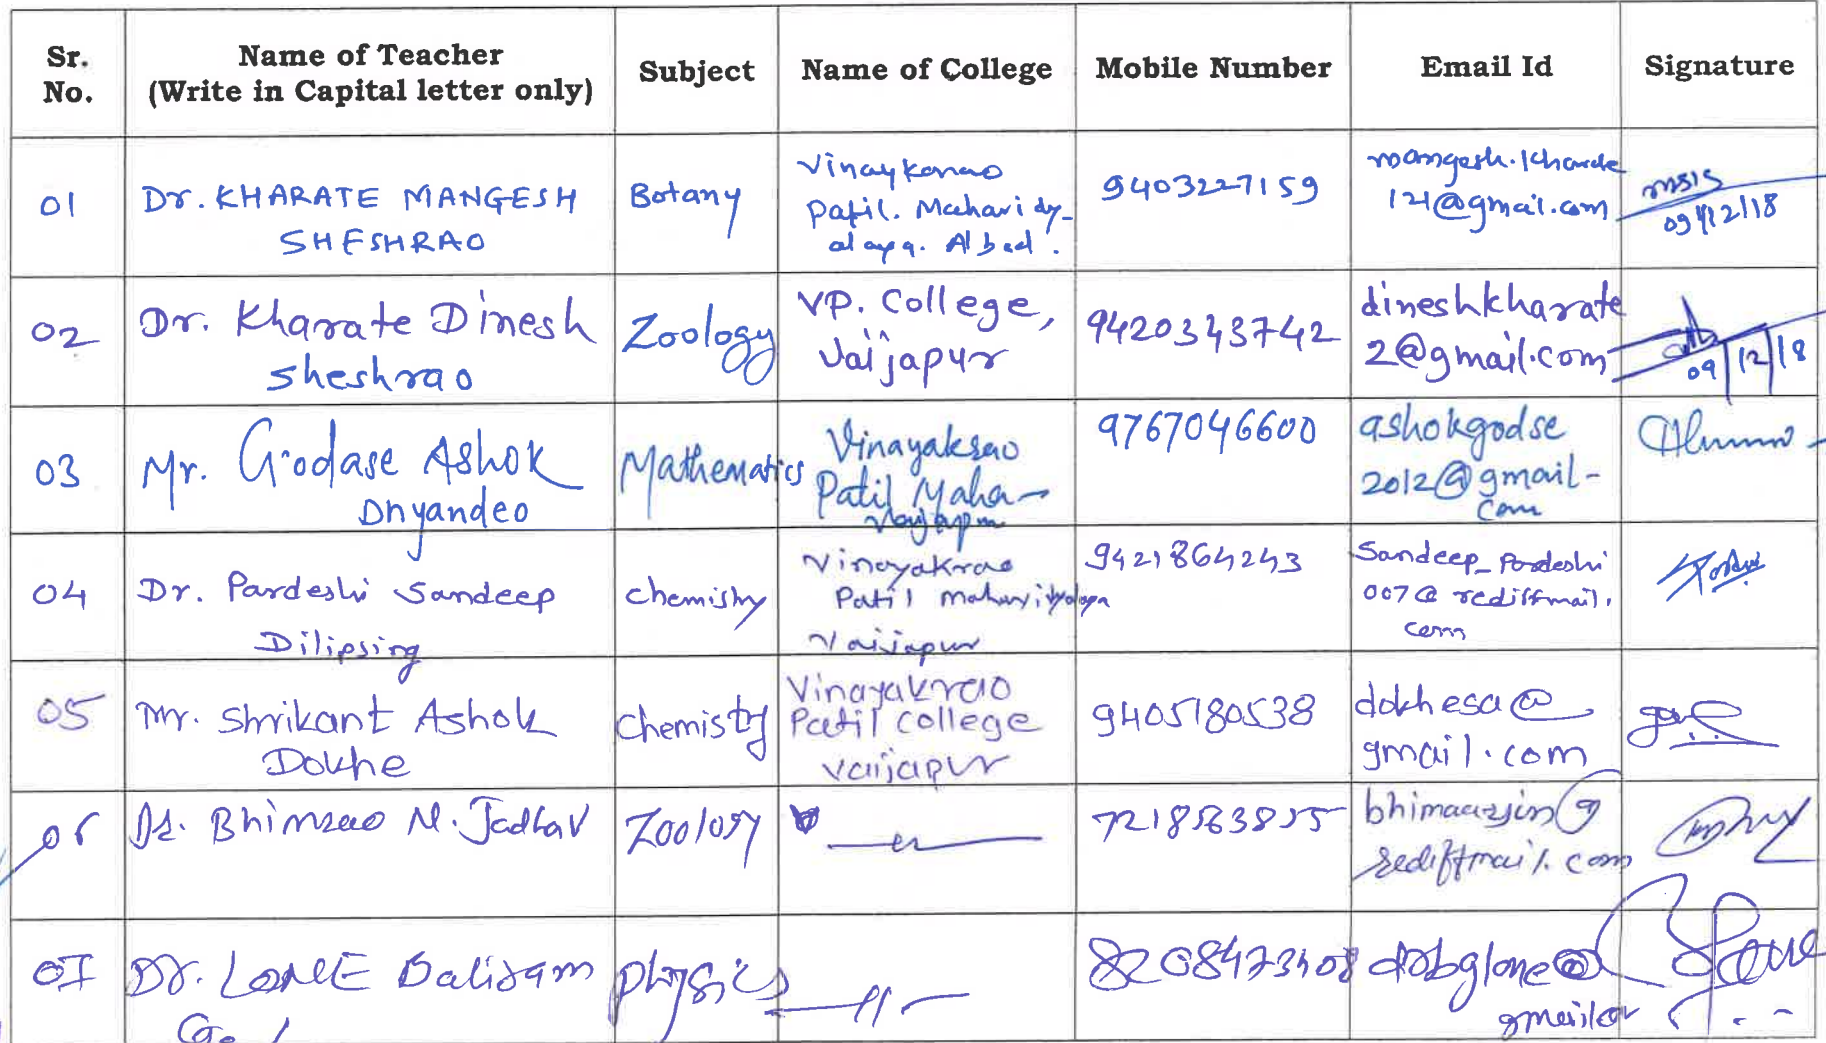 Sr. No.
Name of Teacher
(Write in Capital letter only)
Subject
Name of College
Mobile Number
Email Id
Signature
01
Dr. KHARATE MANGESH
SHESHRAO
Botany
Patil. Mahavidy-
alaya. A'bad.
9403227159
121@gmail.com
09/12/18
02
Dr. Kharate Dinesh
Sheshrao
Zoology
VP. College,
Vaijapur
9420343742
dineshkharate
2@gmail.com
09/12/18
03
Mr. Godase Ashok
Dnyandeo
Mathematics
Vinayakrao
Patil Maha-
Vaijapur
9767046600
ashokgodse
2012@gmail-
com
04
Dr. Pardeshi Sandeep
Dilipsing
chemistry
Vinayakrao
Patil Mahavidyalaya
Vaijapur
9421864243
Sandeep_Pardeshi
007@rediffmail.
com
05
Mr. Shrikant Ashok
Dokhe
Chemistry
Vinayakrao
Patil college
vaijapur
9405180538
dokhesa@
gmail.com
06
Dr. Bhimrao N. Jadhav
Zoology
rediffmail.com
07
Dr. LONE Baliram
physics
— 11 —
drbglone@